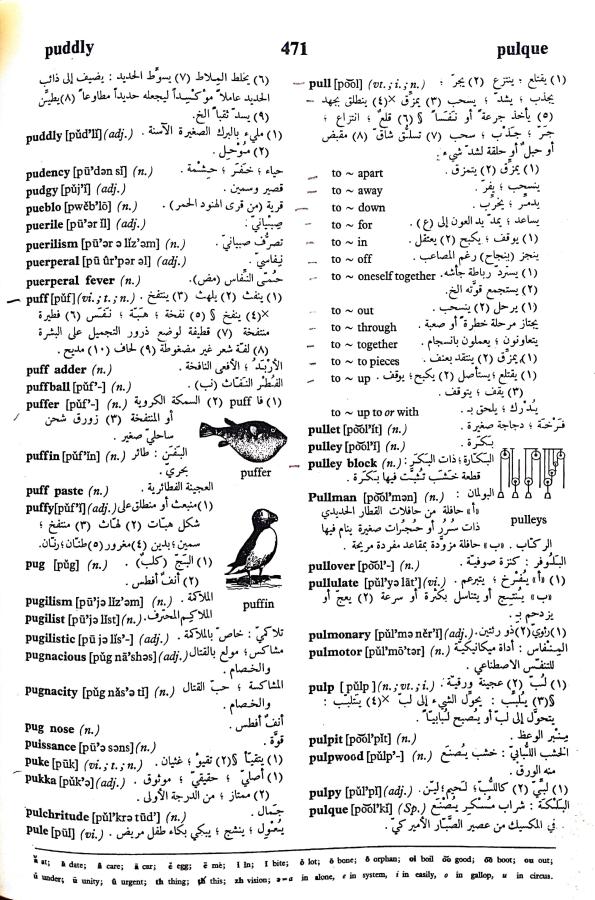 puddly 471 pulque
(٦) يخلط الملاط (٧) يسوّط الحديد : يضيف إلى ذائب
الحديد عاملاً مؤكسِداً ليجعله حديداً مطاوعاً (٨) يطيّن
(٩) يسدّ ثقباً الخ.
puddly [pŭd'lĭ] (adj.) (١) مليء بالبرك الصغيرة الآسنة .
(٢) مُوْحِل .
pudency [pū'dən sĭ] (n.) حياء ؛ خَفَر ؛ حِشْمة .
pudgy [pŭj'ĭ] (adj.) قصير وسمين .
pueblo [pwĕb'lō] (n.) قرية (من قرى الهنود الحمر) .
puerile [pū'ər ĭl] (adj.) صِبيانيّ .
puerilism [pū'ər ə lĭz'əm] (n.) تصرُّف صبيانيّ .
puerperal [pū ûr'pər əl] (adj.) نِفاسيّ .
puerperal fever (n.) حُمّى النِّفاس (مض).
puff [pŭf] (vi.; t.; n.) (١) ينفث (٢) يلهث (٣) ينتفخ .
×(٤) ينفخ §(٥) نفخة ؛ هَبّة ؛ نَفَس (٦) فطيرة
منتفخة (٧) قطيفة لوضع ذرور التجميل على البشرة
(٨) لفّة شعر غير مضغوطة (٩) لحاف (١٠) مديح .
puff adder (n.) الأرْبَد ؛ الأفعى النافخة .
puffball [pŭf'-] (n.) الفُطْر النَّفّاث (نب) .
puffer [pŭf'-] (n.) (١) فا puff (٢) السمكة الكروية
أو المنتفخة (٣) زورق شحن
ساحليّ صغير .
puffin [pŭf'ĭn] (n.) البَفِن : طائر
بحريّ .
puffer
puff paste (n.) العجينة الفطائرية .
puffy [pŭf'ĭ] (adj.) (١) منبعث أو منطلق على
شكل هبّات (٢) لهّاث (٣) منتفخ ؛
سمين ؛ بدين (٤) مغرور (٥) طنّان ؛ رنّان .
pug [pŭg] (n.) (١) البَج (كلب) .
(٢) أنفٌ أفطس .
puffin
pugilism [pū'jə lĭz'əm] (n.) الملاكمة .
pugilist [pū'jə lĭst] (n.) الملاكم المحترف .
pugilistic [pū jə lĭs'-] (adj.) تلاكميّ : خاصّ بالملاكمة .
pugnacious [pŭg nā'shəs] (adj.) مشاكس ؛ مولع بالقتال
والخصام .
pugnacity [pŭg năs'ə tĭ] (n.) المشاكسة ؛ حبّ القتال
والخصام .
pug nose (n.) أنفٌ أفطس .
puissance [pū'ə səns] (n.) قوّة .
puke [pūk] (vi.; t.; n.) (١) يتقيّأ §(٢) تقيؤ ؛ غثيان .
pukka [pŭk'ə] (adj.) (١) أصليّ ؛ حقيقيّ ؛ موثوق .
(٢) ممتاز ؛ من الدرجة الأولى .
pulchritude [pŭl'krə tūd'] (n.) جَمال .
pule [pūl] (vi.) يُعْوِل ؛ ينشج ؛ يبكي بكاء طفل مريض .
pull [po͝ol] (vt.; i.; n.) (١) يقتلع ؛ ينتزع (٢) يجرّ ؛
يجذب ؛ يشدّ ؛ يسحب (٣) يمزّق ×(٤) ينطلق بجهد
(٥) يأخذ جرعةً أو نَفَساً §(٦) قلع ؛ انتزاع ؛
جَرّ ؛ جَذْب ؛ سحب (٧) تسلّق شاقّ (٨) مقبض
أو حبل أو حلقة لشدّ شيء .
to ~ apart (١) يمزّق (٢) يتمزق .
to ~ away ينسحب ؛ يفرّ .
to ~ down يدمّر ؛ يخرّب .
to ~ for يساعد ؛ يمدّ يد العون إلى (ع) .
to ~ in (١) يوقف ؛ يكبح (٢) يعتقل .
to ~ off ينجز (بنجاح) رغم المصاعب .
to ~ oneself together (١) يستردّ رباطة جأشه .
(٢) يستجمع قوّته الخ.
to ~ out (١) يرحل (٢) ينسحب .
to ~ through يجتاز مرحلة خطرة أو صعبة .
to ~ together يتعاونون ؛ يعملون بانسجام .
to ~ to pieces (١) يمزّق (٢) ينتقد بعنف .
to ~ up (١) يقتلع ؛ يستأصل (٢) يكبح ؛ يوقف .
(٣) يقف ؛ يتوقف .
to ~ up to or with يُدْرك ؛ يلحق بـ .
pullet [po͝ol'ĭt] (n.) فَرْخَة ؛ دجاجة صغيرة .
pulley [po͝ol'ĭ] (n.) بَكَرة .
pulley block (n.) البَكّارة ؛ ذات البَكَر :
قطعة خَشَب تُثَبَّت فيها بَكَرة .
Pullman [po͝ol'mən] (n.) البولمان :
«أ» حافلة من حافلات القطار الحديدي
ذات سُرُر أو حُجُرات صغيرة ينام فيها
pulleys
الركاب . «ب» حافلة مزوّدة بمقاعد مفردة مريحة .
pullover [po͝ol'-] (n.) البَلُوفر : كنزة صوفيّة .
pullulate [pŭl'yə lāt'] (vi.) (١) «أ» يُفْرخ ؛ يتبرعم .
«ب» يُنْتِج أو يتناسل بكثرة أو سرعة (٢) يعجّ أو
يزدحم بـ .
pulmonary [pŭl'mə nĕr'ĭ] (adj.) (١) رئويّ (٢) ذو رئتين .
pulmotor [pŭl'mō'tər] (n.) المِنفاس : أداة ميكانيكية
للتنفّس الاصطناعي .
pulp [pŭlp] (n.; vt.; i.) (١) لُبّ (٢) عجينة ورقيّة .
§(٣) يُلَبِّب : يحوّل الشيء إلى لبّ ×(٤) يتلبّب :
يتحوّل إلى لبّ أو يُصبح لُبابيّاً .
pulpit [po͝ol'pĭt] (n.) مِنْبَر الوعظ .
pulpwood [pŭlp'-] (n.) الخشب اللُّبابيّ : خشب يُصنع
منه الورق .
pulpy [pŭl'pĭ] (adj.) (١) لُبّيّ (٢) كاللُّبّ ؛ لَحيم ؛ ليّن .
pulque [po͝ol'kĭ] (Sp.) البَلْكة : شراب مُسكِر يُصْنَع
في المكسيك من عصير الصبّار الأميركيّ .
ă at; ā date; â care; ä car; ĕ egg; ē mē; ĭ in; ī bite; ŏ lot; ō bone; ô orphan; oi boil o͝o good; o͞o boot; ou out;
ŭ under; ū unity; û urgent; th thing; t͟h this; zh vision; ə=a in alone, e in system, i in easily, o in gallop, u in circus.